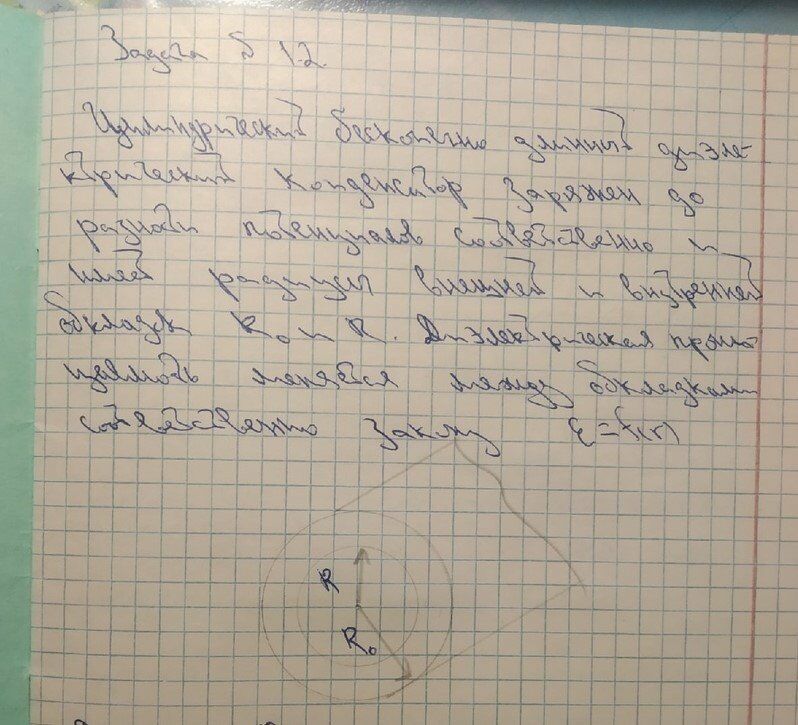 Задача § 1.2
Цилиндрический бесконечно длинный диэле-
ктрический конденсатор заряжен до
разности потенциалов соответственно и
имеет радиусы внешней и внутренней
обкладок R₀ и R. Диэлектрическая прони-
цаемость меняется между обкладками
соответственно закону ε = f(r)
R
R₀